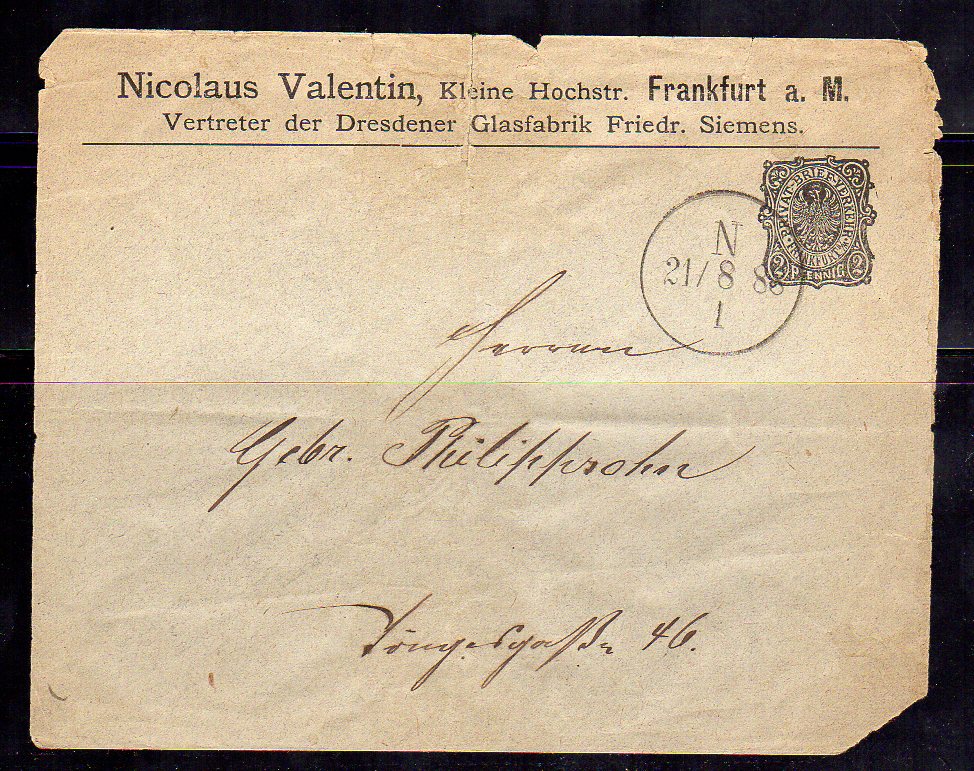 Nicolaus Valentin, Kleine Hochstr. Frankfurt a. M.
Vertreter der Dresdener Glasfabrik Friedr. Siemens.
PRIVAT-BRIEF-VERKEHR
FRANKFURT a/M
2 PFENNIG 2
N
21/8 88
1
Herren
Gebr. Philippsohn
Töngesgaße 46.